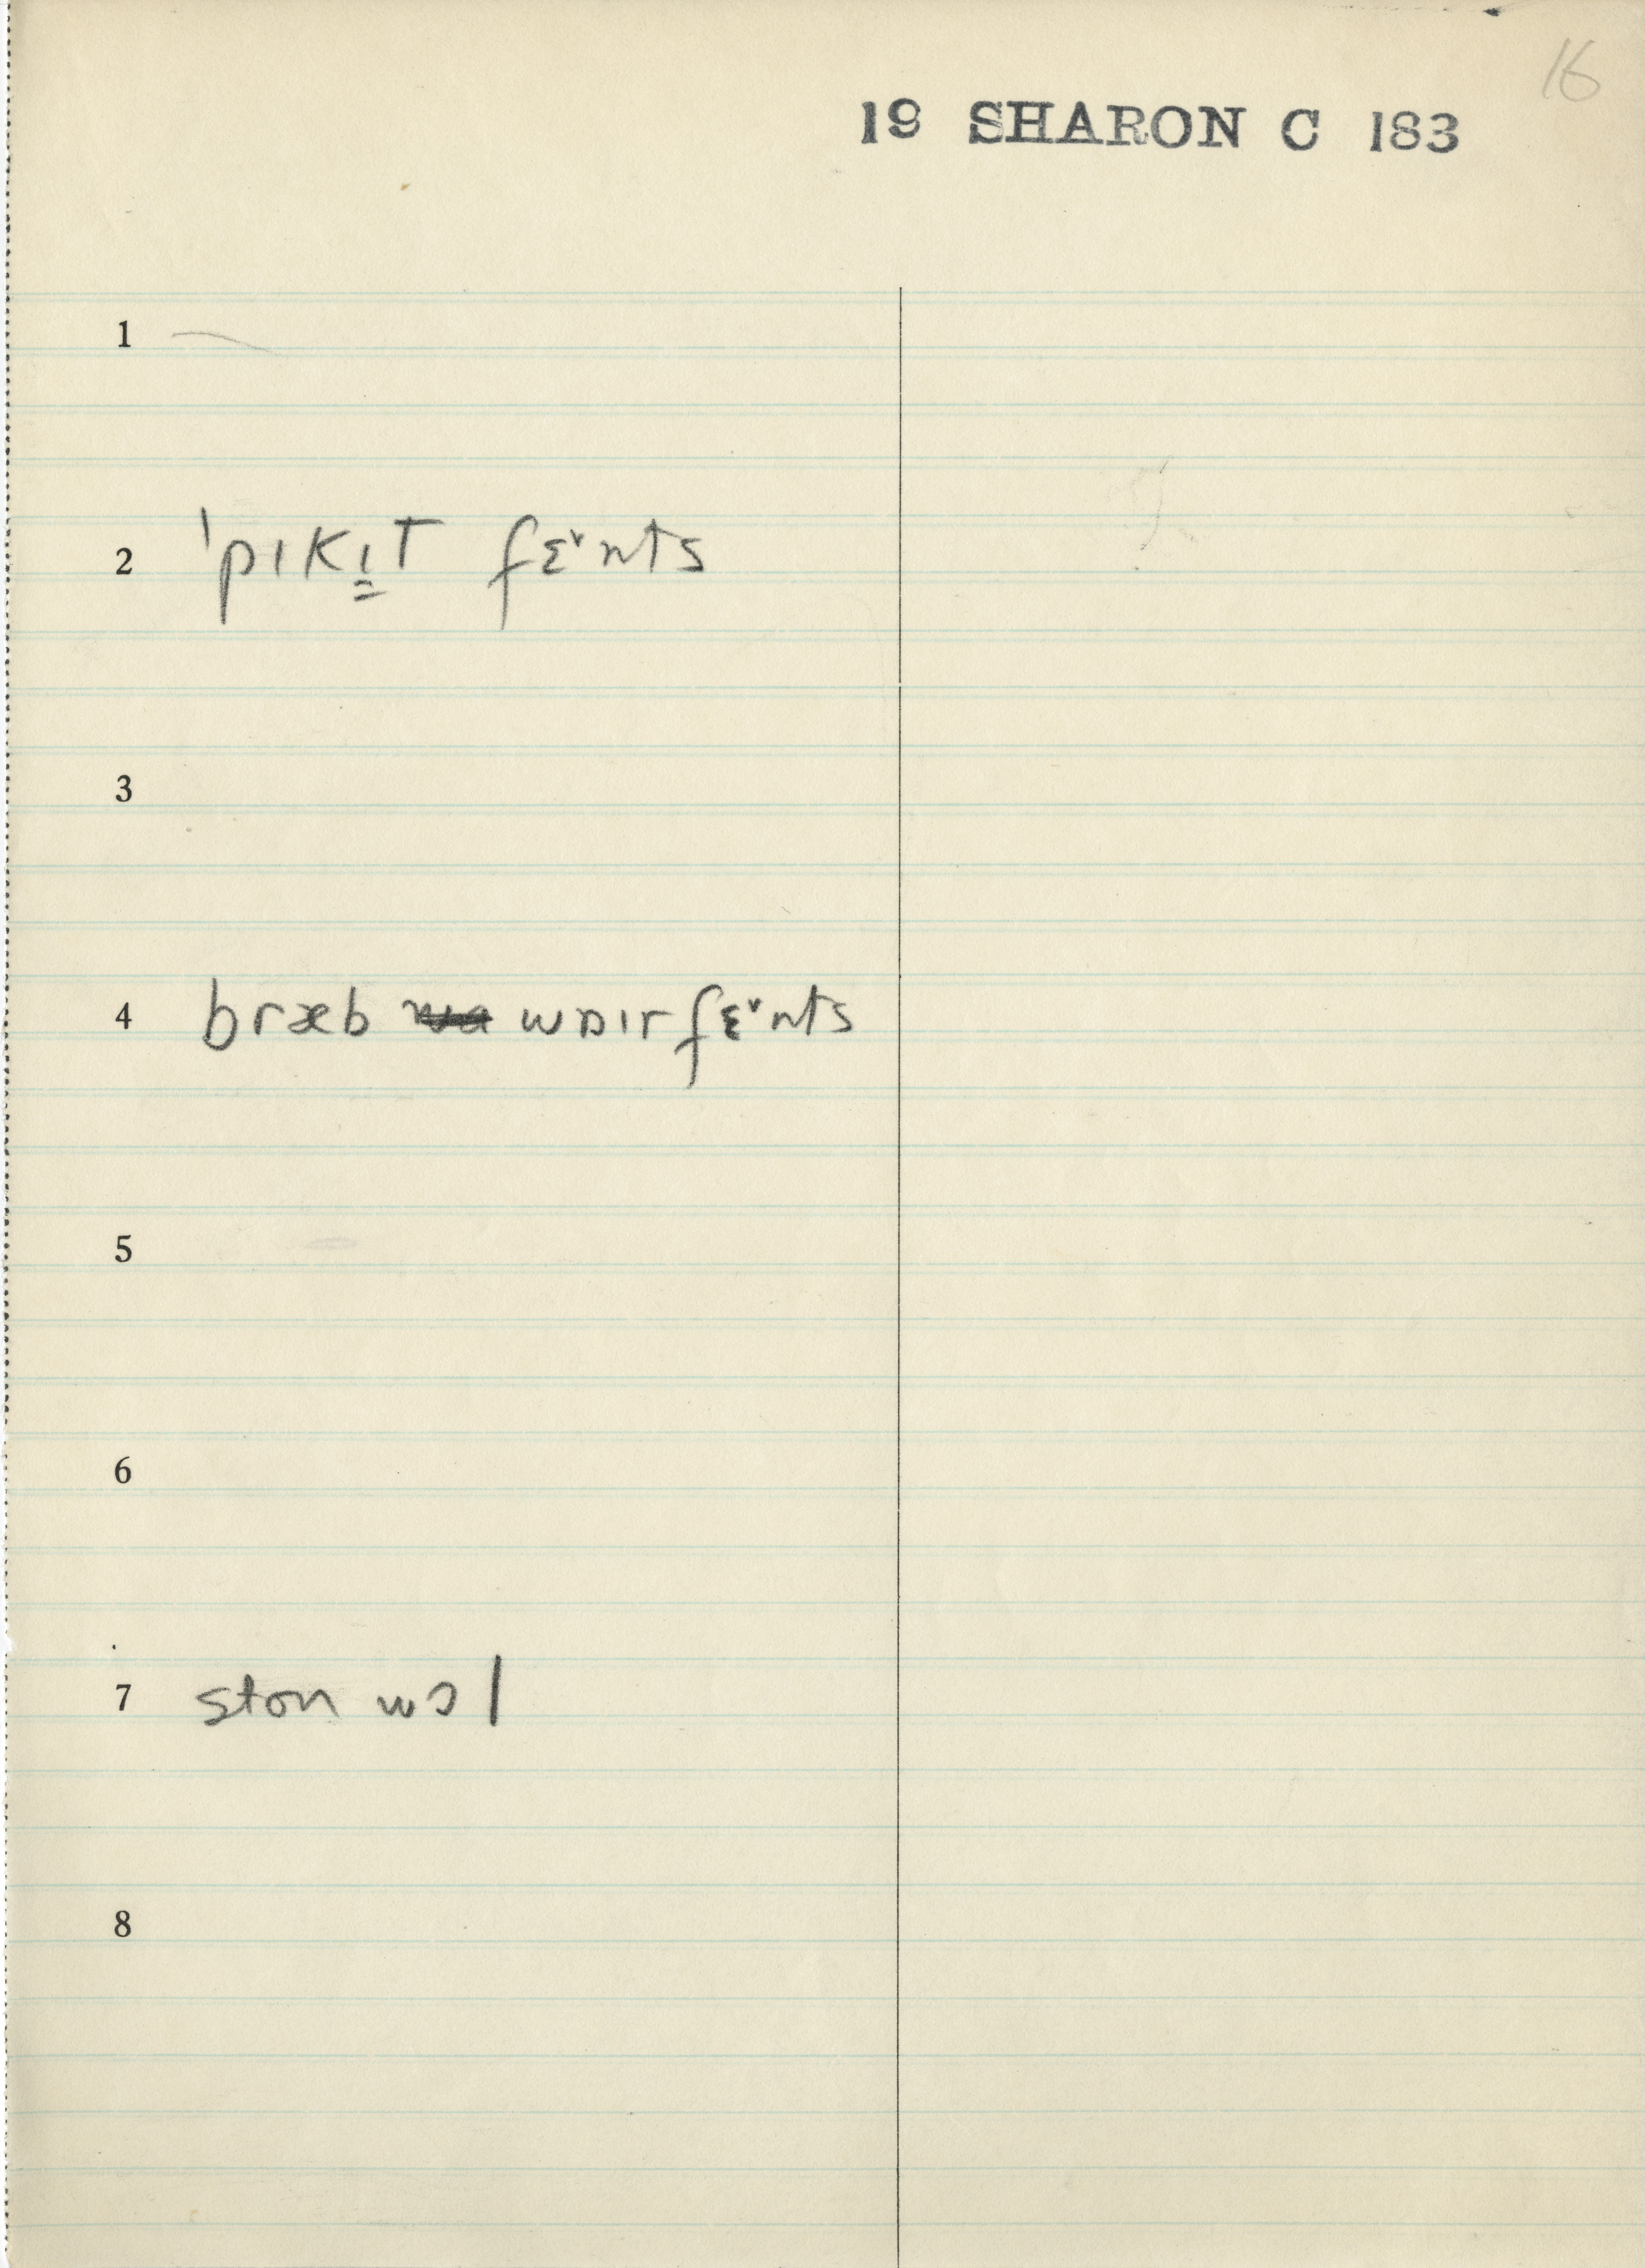 16
19 SHARON C 183
1 —
2 ˈpɪkɪ̳t fɛ˅nts
3
4 bræb wɒɪr fɛ˅nts
5
6
7 ston wɔl
8